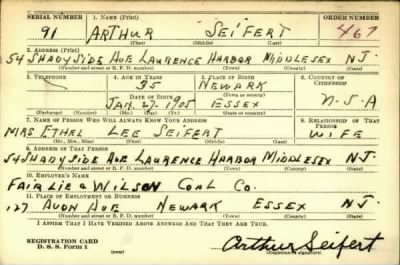 SERIAL NUMBER 1. NAME (Print) ORDER NUMBER
91 ARTHUR SEIFERT 467
(First) (Middle) (Last)
2. ADDRESS (Print)
54 SHADYSIDE AVE LAURENCE HARBOR MIDDLESEX N.J.
(Number and street or R. F. D. number) (Town) (County) (State)
3. TELEPHONE 4. AGE IN YEARS 5. PLACE OF BIRTH 6. COUNTRY OF CITIZENSHIP
35 NEWARK
DATE OF BIRTH (Town or county)
JAN. 27. 1905 ESSEX U.S.A
(Exchange) (Number) (Mo.) (Day) (Yr.) (State or country)
7. NAME OF PERSON WHO WILL ALWAYS KNOW YOUR ADDRESS 8. RELATIONSHIP OF THAT PERSON
MRS ETHEL LEE SEIFERT WIFE
(Mr., Mrs., Miss) (First) (Middle) (Last)
9. ADDRESS OF THAT PERSON
54 SHADYSIDE AVE LAURENCE HARBOR MIDDLESEX N.J.
(Number and street or R. F. D. number) (Town) (County) (State)
10. EMPLOYER'S NAME
FAIRLIE & WILSON COAL CO.
11. PLACE OF EMPLOYMENT OR BUSINESS
127 AVON AVE NEWARK ESSEX N.J.
(Number and street or R. F. D. number) (Town) (County) (State)
I AFFIRM THAT I HAVE VERIFIED ABOVE ANSWERS AND THAT THEY ARE TRUE.
REGISTRATION CARD
D. S. S. Form 1
Arthur Seifert
(Registrant's signature)